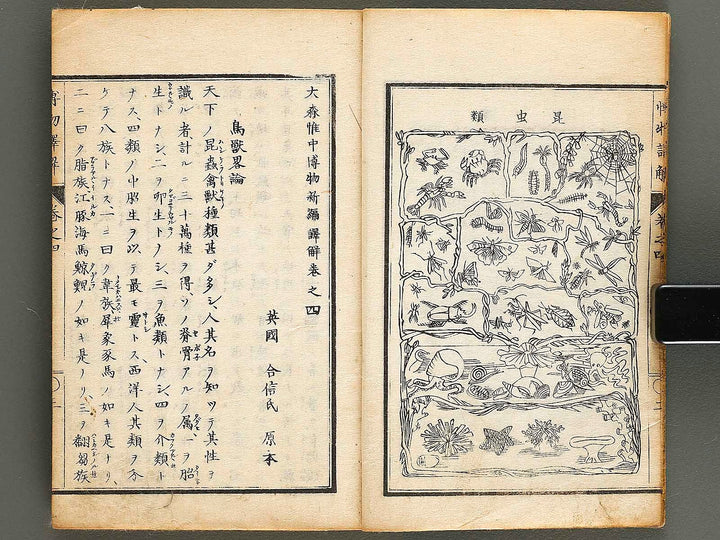 昆虫類
大森惟中博物新編譯解巻之四
英國 合信氏 原本
鳥獣畧論
天下ノ昆蟲禽獣種類甚ダ多シ、人其名ヲ知ツテ其性ヲ
識ル者、計ルニ三十萬種ヲ得、ソノ脊骨アルノ属、一ヲ胎
生トナシ、二ヲ卵生トナシ、三ヲ魚類トナシ、四ヲ介類ト
ナス、四類ノ中胎生ヲ以テ最モ靈トス、西洋人其類ヲ分
ケテ八族トナス、一ニ曰ク韋族、犀象豕馬ノ如キ是ナリ、
二ニ曰ク脂族、江豚海馬鯨鯢ノ如キ是ナリ、三ヲ翻芻族